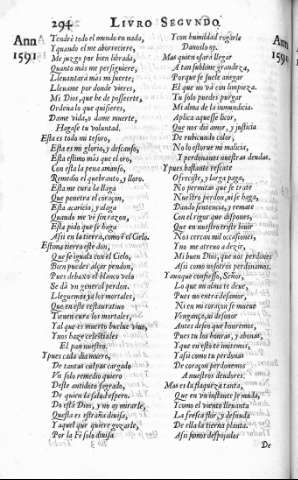 294 LIVRO SEGVNDO
Anno
1591
Tendrè todo el mundo en nada,
Y quando el me aborreciere,
Me juzgo por bien librada,
Quanto màs me persiguiere,
Lleuantarà màs mi suerte,
Lleueme por donde viere,
Mi Dios, que he de posseerte,
Ordena lo que quisieres,
Dame vida, o dame muerte,
Hagase tu voluntad.
Esta es toda mi tesoro,
Esta es mi gloria, y descanso,
Esta estimo màs que el oro,
Con esta la pena amanso,
Remedia el quebranto, y lloro.
Esta me cura la llaga
Que penetra el coraçon,
Esta acaricia, y alaga
Quando me vè sin razon,
Esta pido que se haga
Assi en la tierra, como ẽ el Cielo.
En tierra este don,
Que se iguala con el Cielo,
Bien puedes alçar pendon,
Pues debaxo el blanco velo
Se dà vn general perdon.
Lleguemos ya los mortales,
Que en este restauratiuo
los mortales,
Y al que es muerto buelue viuo,
Y nos haze celestiales
El pan nuestro.
Y pues cada dia muero,
De tantas culpas cargado
Vn solo remedio quiero
Deste antidoto sagrado,
De quien la salud espero.
De està Dios, y no ay mirarle,
Que esta es estraña diuisa,
Y aquel que quiere gozarle,
Por la Fè solo diuisa
Y con humildad rogarle
Danoslo oy.
Mas quien osarà llegar
A tan sublime grandeza,
Porque se suele anegar
El que no và con limpeza.
Tu solo puedes purgar
Mi alma de la inmundicia.
Aplica aquesse licor,
Que nos diò amor, y justicia
De rubicundo color,
No lo estorue mi malicia,
Y perdonanos nuestras deudas.
Y pues bastante rescate
Ofreciste, y larga paga,
No permitas que se trate
Nuestro perdon, ni se haga,
Dando sentencia, y remate
Con el rigor que dispones,
Que en nuestro triste huir
Nos cercan mil ocasiones,
Y no me atreuo a dezir,
Mi buen Dios, que nos perdones
Assi como nosotros perdonamos.
Y aunque confiesso, Señor,
Lo que mi abuso te deue,
Pues no entra desamor,
Ni en mi coraçon se mueue
Vengança, ni desonor
Antes desseo que honremos,
Pues tu los honras, y abonas,
Y que en esto te imitemos,
Y assi como tu perdonas
De coraçon perdonemos
A nuestros deudores.
Mas es la flaqueza tanta,
Que en vn instante se muda,
Y como el viento lleuanta
La
De ella la tierna planta.
Assi somos despojados
De